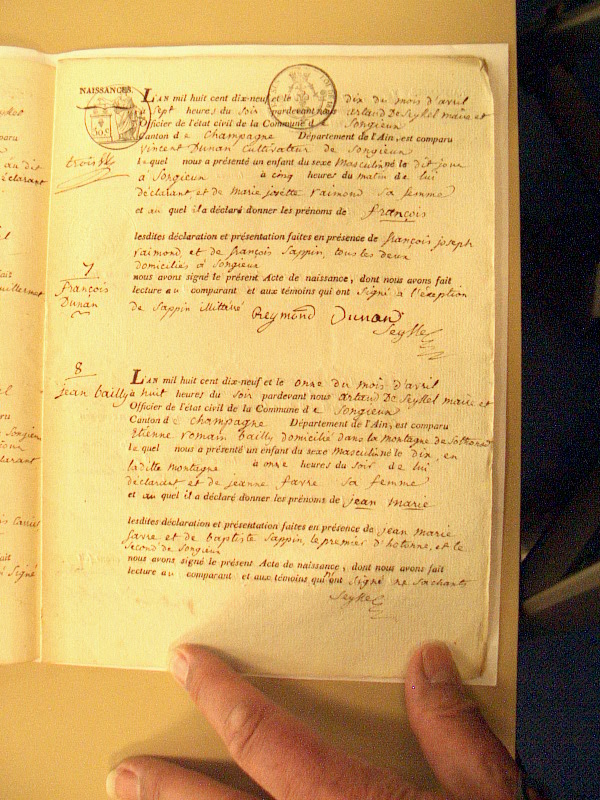 NAISSANCES.
L'AN mil huit cent dix-neuf et le dix du mois d'avril
sept heures du soir pardevant nous artaud De Seyssel maire et
Officier de l'état civil de la Commune d e Songieux
Canton d e Champagne Département de l'Ain, est comparu
Vincent Dunan Cultivateur de Songieux
le quel nous a présenté un enfant du sexe Masculin né le dit jour
à Songieux à cinq heures du matin de lui
déclarant et de Marie josette Raimond sa femme
et au quel il a déclaré donner les prénoms de françois
lesdites déclaration et présentation faites en présence de françois joseph
raimond, et de françois Sappin, tous les deux
domiciliés à Songieux
7
François
Dunan
nous avons signé le présent Acte de naissance, dont nous avons fait
lecture au comparant et aux témoins qui ont signé à l'exception
de Sappin illitéré Reymond Dunan
Seyssel
8
jean bailly
L'AN mil huit cent dix-neuf et le onze du mois d'avril
à huit heures du soir pardevant nous artaud De Seyssel maire et
Officier de l'état civil de la Commune d e Songieux
Canton d e Champagne Département de l'Ain, est comparu
Etienne romain bailly domicilié dans la montagne de
le quel nous a présenté un enfant du sexe Masculin né le dix, en
laditte montagne à onze heures du soir de lui
déclarant et de jeanne favre sa femme
et au quel il a déclaré donner les prénoms de jean marie
lesdites déclaration et présentation faites en présence de jean marie
favre et de baptiste Sappin, le premier d'hotonne, et le
second de Songieux
nous avons signé le présent Acte de naissance, dont nous avons fait
lecture au comparant et aux témoins qui n'ont signé ne sachant
Seyssel